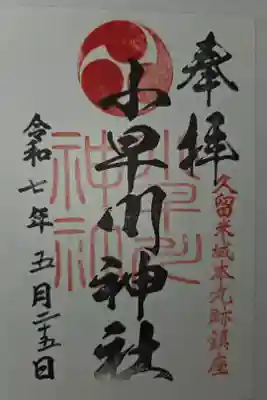 奉拝
久留米城本丸跡鎮座
小早川神社
令和七年五月二十五日